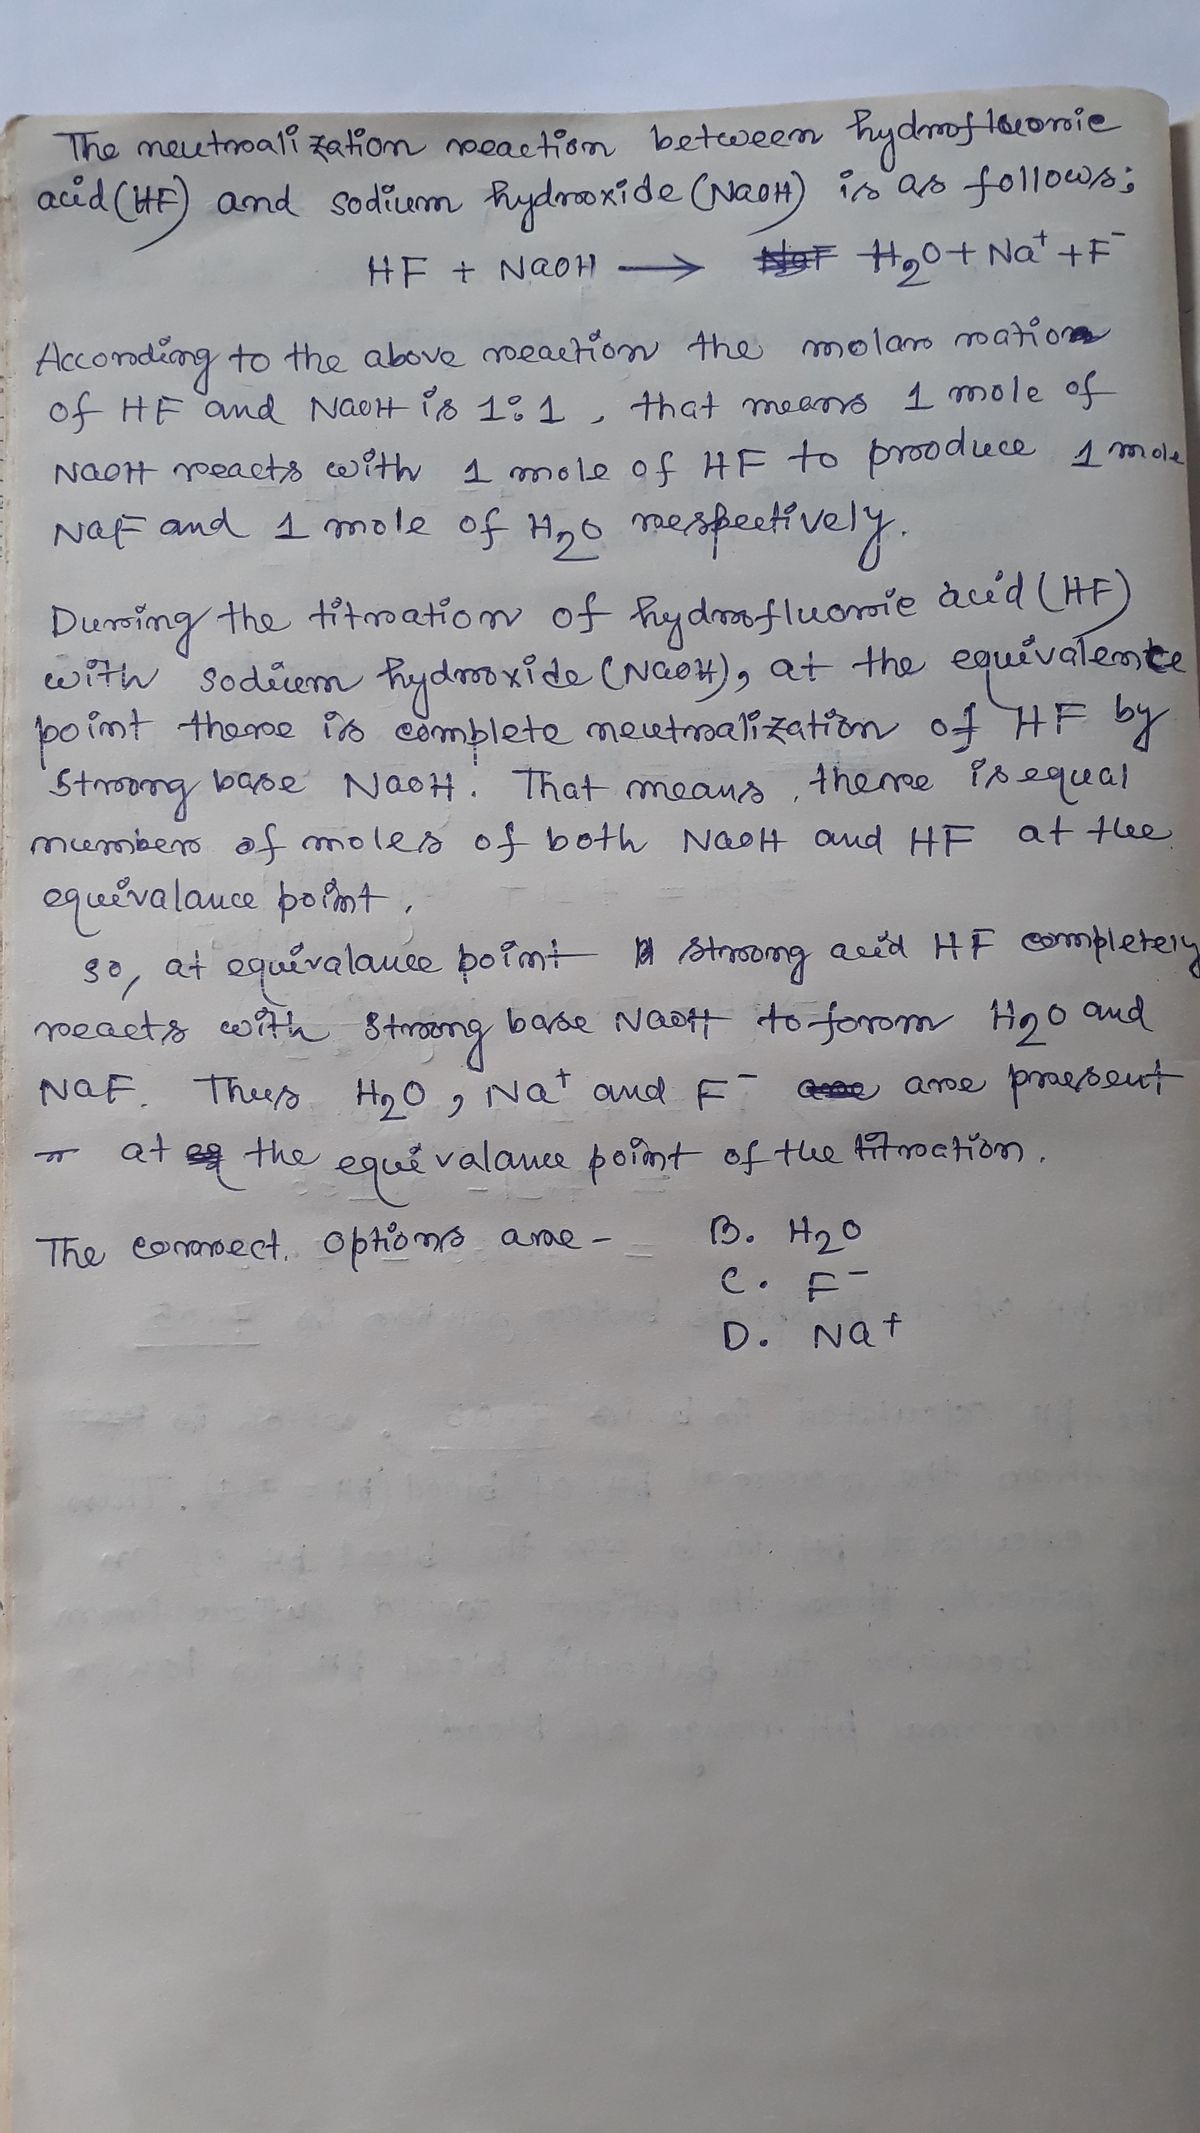 The neutralization reaction between hydrofluoric
acid (HF) and sodium hydroxide (NaOH) is as follows;
HF + NaOH ⟶ H₂O + Na⁺ + F⁻
According to the above reaction the molar ratio
of HF and NaOH is 1:1, that means 1 mole of
NaOH reacts with 1 mole of HF to produce 1 mole
NaF and 1 mole of H₂O respectively.
During the titration of hydrofluoric acid (HF)
with sodium hydroxide (NaOH), at the equivalence
point there is complete neutralization of HF by
strong base NaOH. That means, there is equal
number of moles of both NaOH and HF at the
equivalance point.
So, at equivalance point strong acid HF completely
reacts with strong base NaOH to form H₂O and
NaF. Thus H₂O, Na⁺ and F⁻ are present
at the equivalance point of the titration.
The correct options are - B. H₂O
C. F⁻
D. Na⁺